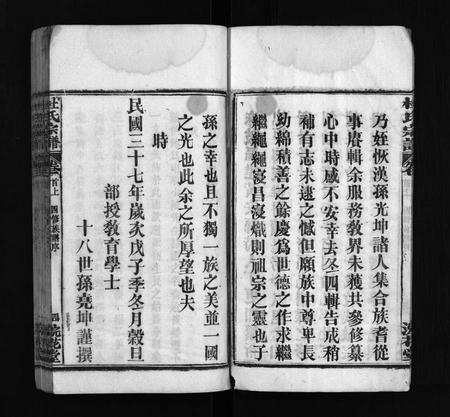 杜氏宗譜
乃姪恢漢孫光坤諸人集合族耆從
事賡輯余服務敎界未獲共參修纂
心中時感不安幸去冬四輯告成稍
補有志未逮之憾但願族中尊卑長
幼綿積善之餘慶爲世德之作求繼
繼繩繩寖昌寖熾則祖宗之靈也子
孫之幸也且不獨一族之美並一國
之光也此余之所厚望也夫
時
民國三十七年歲次戊子季冬月穀旦
部授敎育學士
十八世孫堯坤謹撰
杜氏宗譜
卷首上
四修族譜序
四
浣花堂